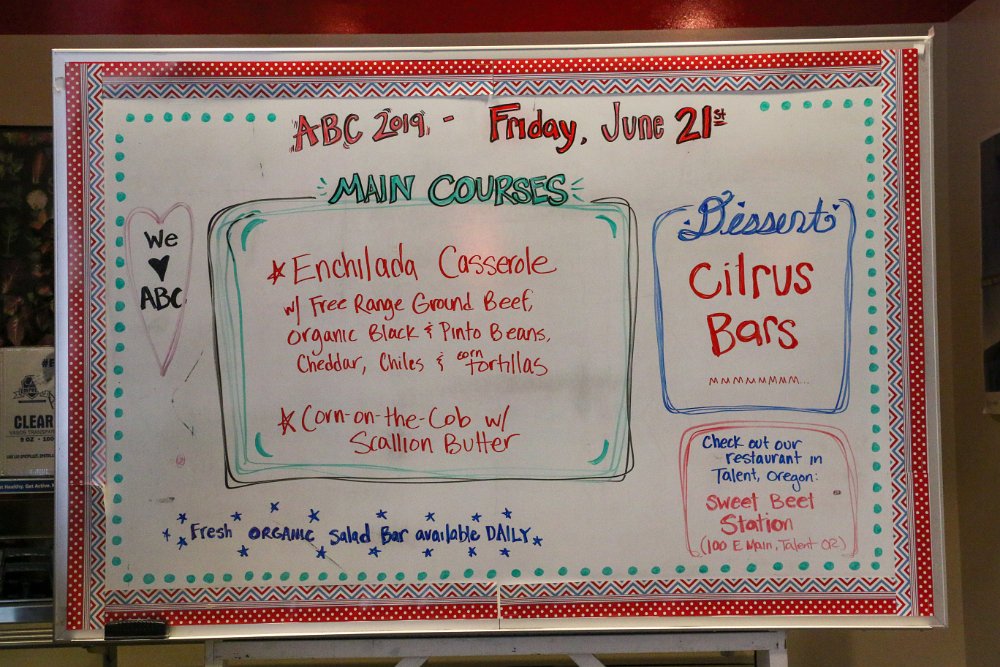 ABC 2019 - Friday, June 21st
MAIN COURSES
Enchilada Casserole
w/ Free Range Ground Beef,
Organic Black & Pinto Beans,
Cheddar, Chiles & corn tortillas
Corn-on-the-Cob w/
Scallion Butter
We
♥
ABC
Dessert
Citrus
Bars
mmmmmmmm...
Check out our
restaurant in
Talent, Oregon:
Sweet Beet
Station
(100 E Main, Talent OR)
Fresh ORGANIC Salad Bar available DAILY
CLEAR